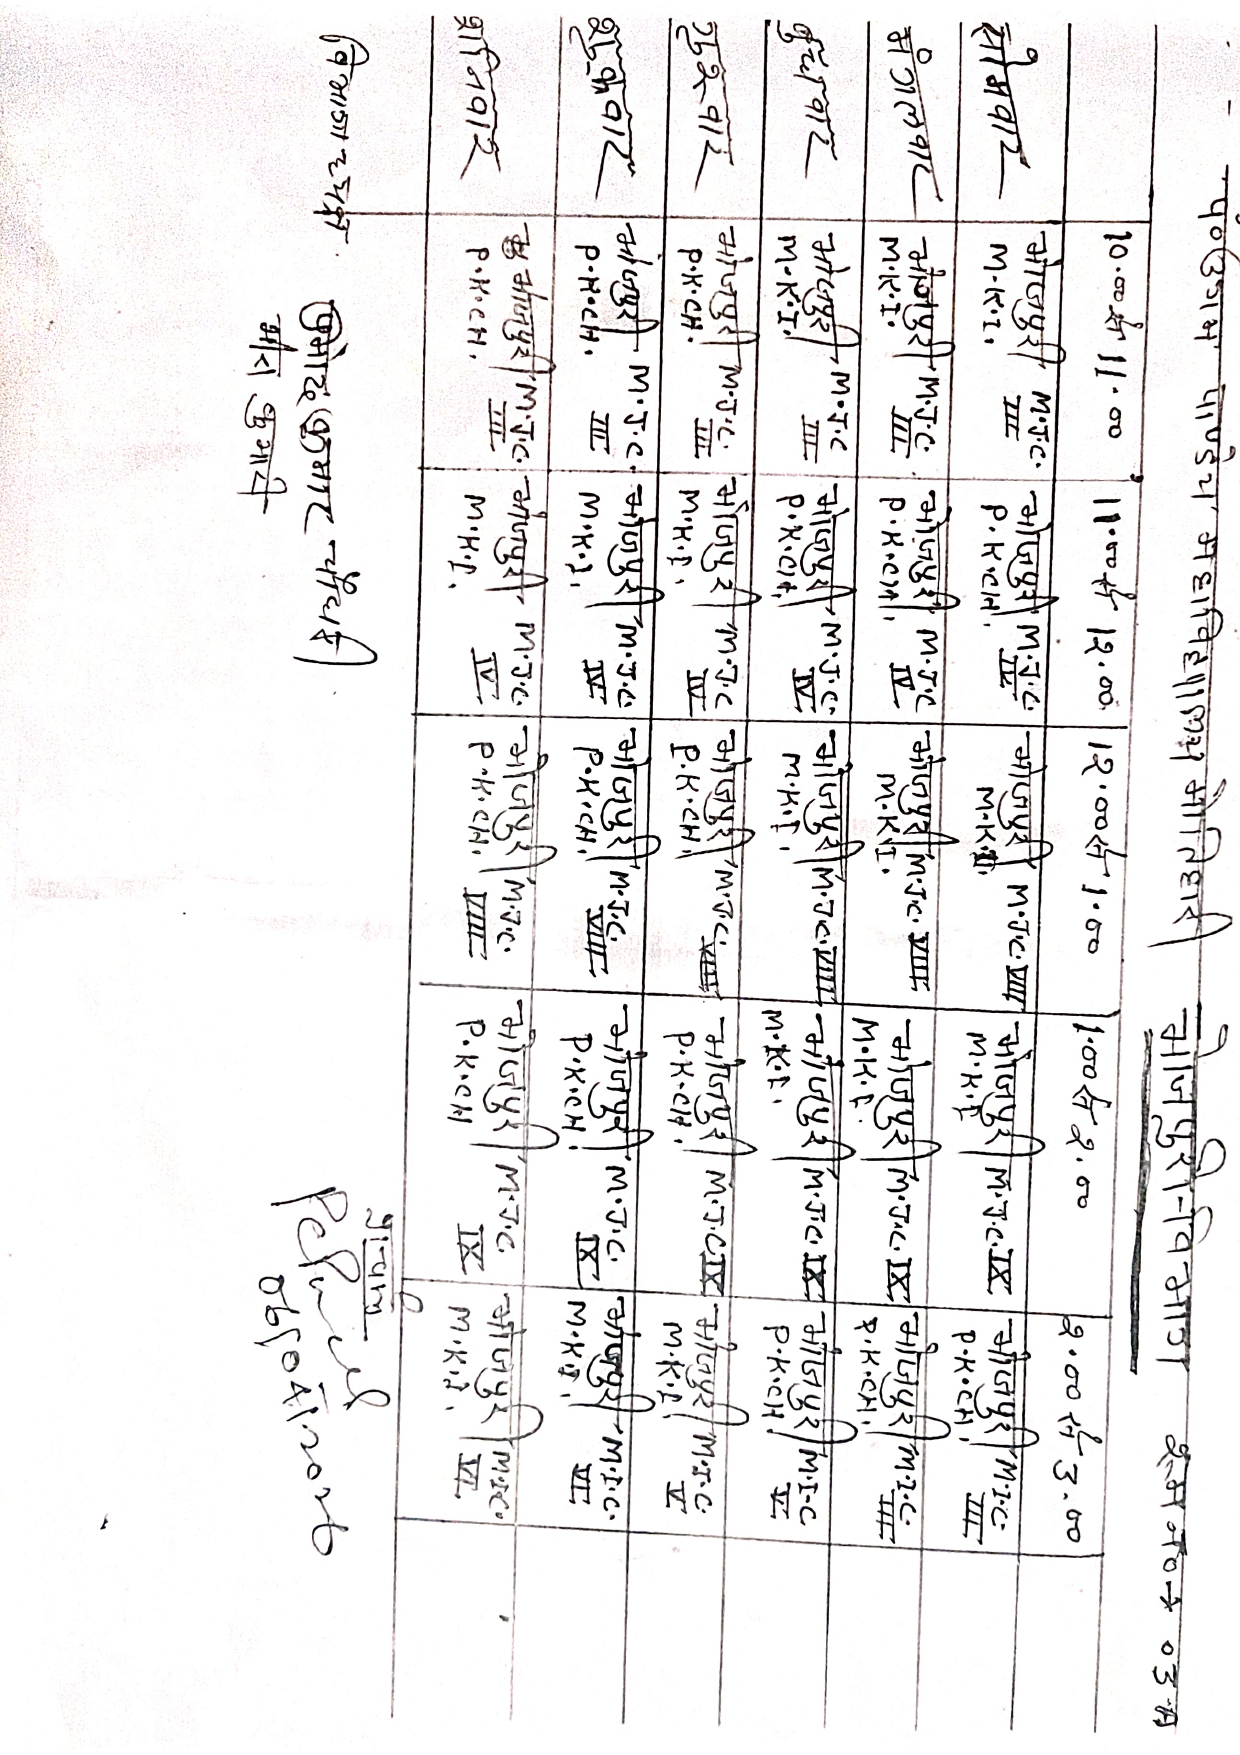 पं० उगम पाण्डेय महाविद्यालय मोतिहारी भोजपुरी-विभाग रूम नं० → 03 A
10.00 से 11.00 11.00 से 12.00 12.00 से 1.00 1.00 से 2.00 2.00 से 3.00
सोमवार भोजपुरी M.J.C. III M.K.I. भोजपुरी M.J.C. IV P.K.CH. भोजपुरी M.J.C. VIII M.K.I. भोजपुरी M.J.C. IX M.K.I. भोजपुरी M.I.C. III P.K.CH.
मंगलवार भोजपुरी M.J.C. III M.K.I. भोजपुरी M.J.C. IV P.K.CH. भोजपुरी M.J.C. VIII M.K.I. भोजपुरी M.J.C. IX M.K.I. भोजपुरी M.I.C. III P.K.CH.
बुधवार भोजपुरी M.J.C III M.K.I. भोजपुरी M.J.C. IV P.K.CH. भोजपुरी M.J.C. VIII M.K.I. भोजपुरी M.J.C. IX M.K.I. भोजपुरी M.I.C V P.K.CH.
गुरुवार भोजपुरी M.J.C. III P.K.CH. भोजपुरी M.J.C IV M.K.I. भोजपुरी M.J.C. VIII P.K.CH. भोजपुरी M.J.C. IX P.K.CH. भोजपुरी M.I.C. V M.K.I.
शुक्रवार भोजपुरी M.J.C. III P.K.CH. भोजपुरी M.J.C. IV M.K.I. भोजपुरी M.J.C. VIII P.K.CH. भोजपुरी M.J.C. IX P.K.CH. भोजपुरी M.I.C. VI M.K.I.
शनिवार भोजपुरी M.J.C. III P.K.CH. भोजपुरी M.J.C. IV M.K.I. भोजपुरी M.J.C. VIII P.K.CH. भोजपुरी M.J.C. IX P.K.CH भोजपुरी M.I.C. VI M.K.I.
विभागाध्यक्ष
कुमार चौधरी
मनि कुमारी